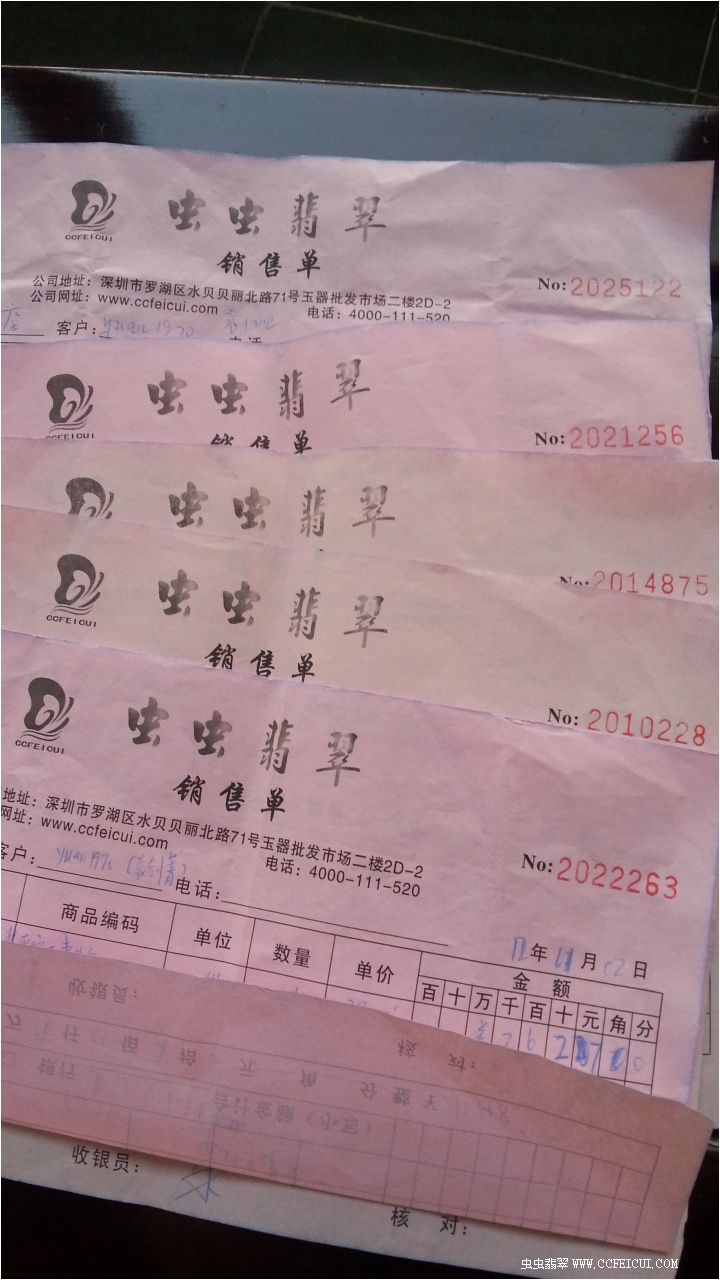 CCFEICUI
虫虫翡翠
销售单
公司地址：深圳市罗湖区水贝贝丽北路71号玉器批发市场二楼2D-2
公司网址：www.ccfeicui.com 电话：4000-111-520
No: 2025122
店 客户：yuan1970
CCFEICUI
虫虫翡翠
销售单
No: 2021256
虫虫翡翠
No: 2014875
CCFEICUI
虫虫翡翠
销售单
No: 2010228
CCFEICUI
虫虫翡翠
销售单
地址：深圳市罗湖区水贝贝丽北路71号玉器批发市场二楼2D-2
网址：www.ccfeicui.com 电话：4000-111-520
No: 2022263
客户： 电话：
12年11月02日
商品编码 单位 数量 单价 金额
百十万千百十元角分
收银员：
核 对：
万 仟 佰 拾 元 角 分 整 ¥
合计金额（小写）
收银员：
核 对：
虫虫翡翠 WWW.CCFEICUI.COM